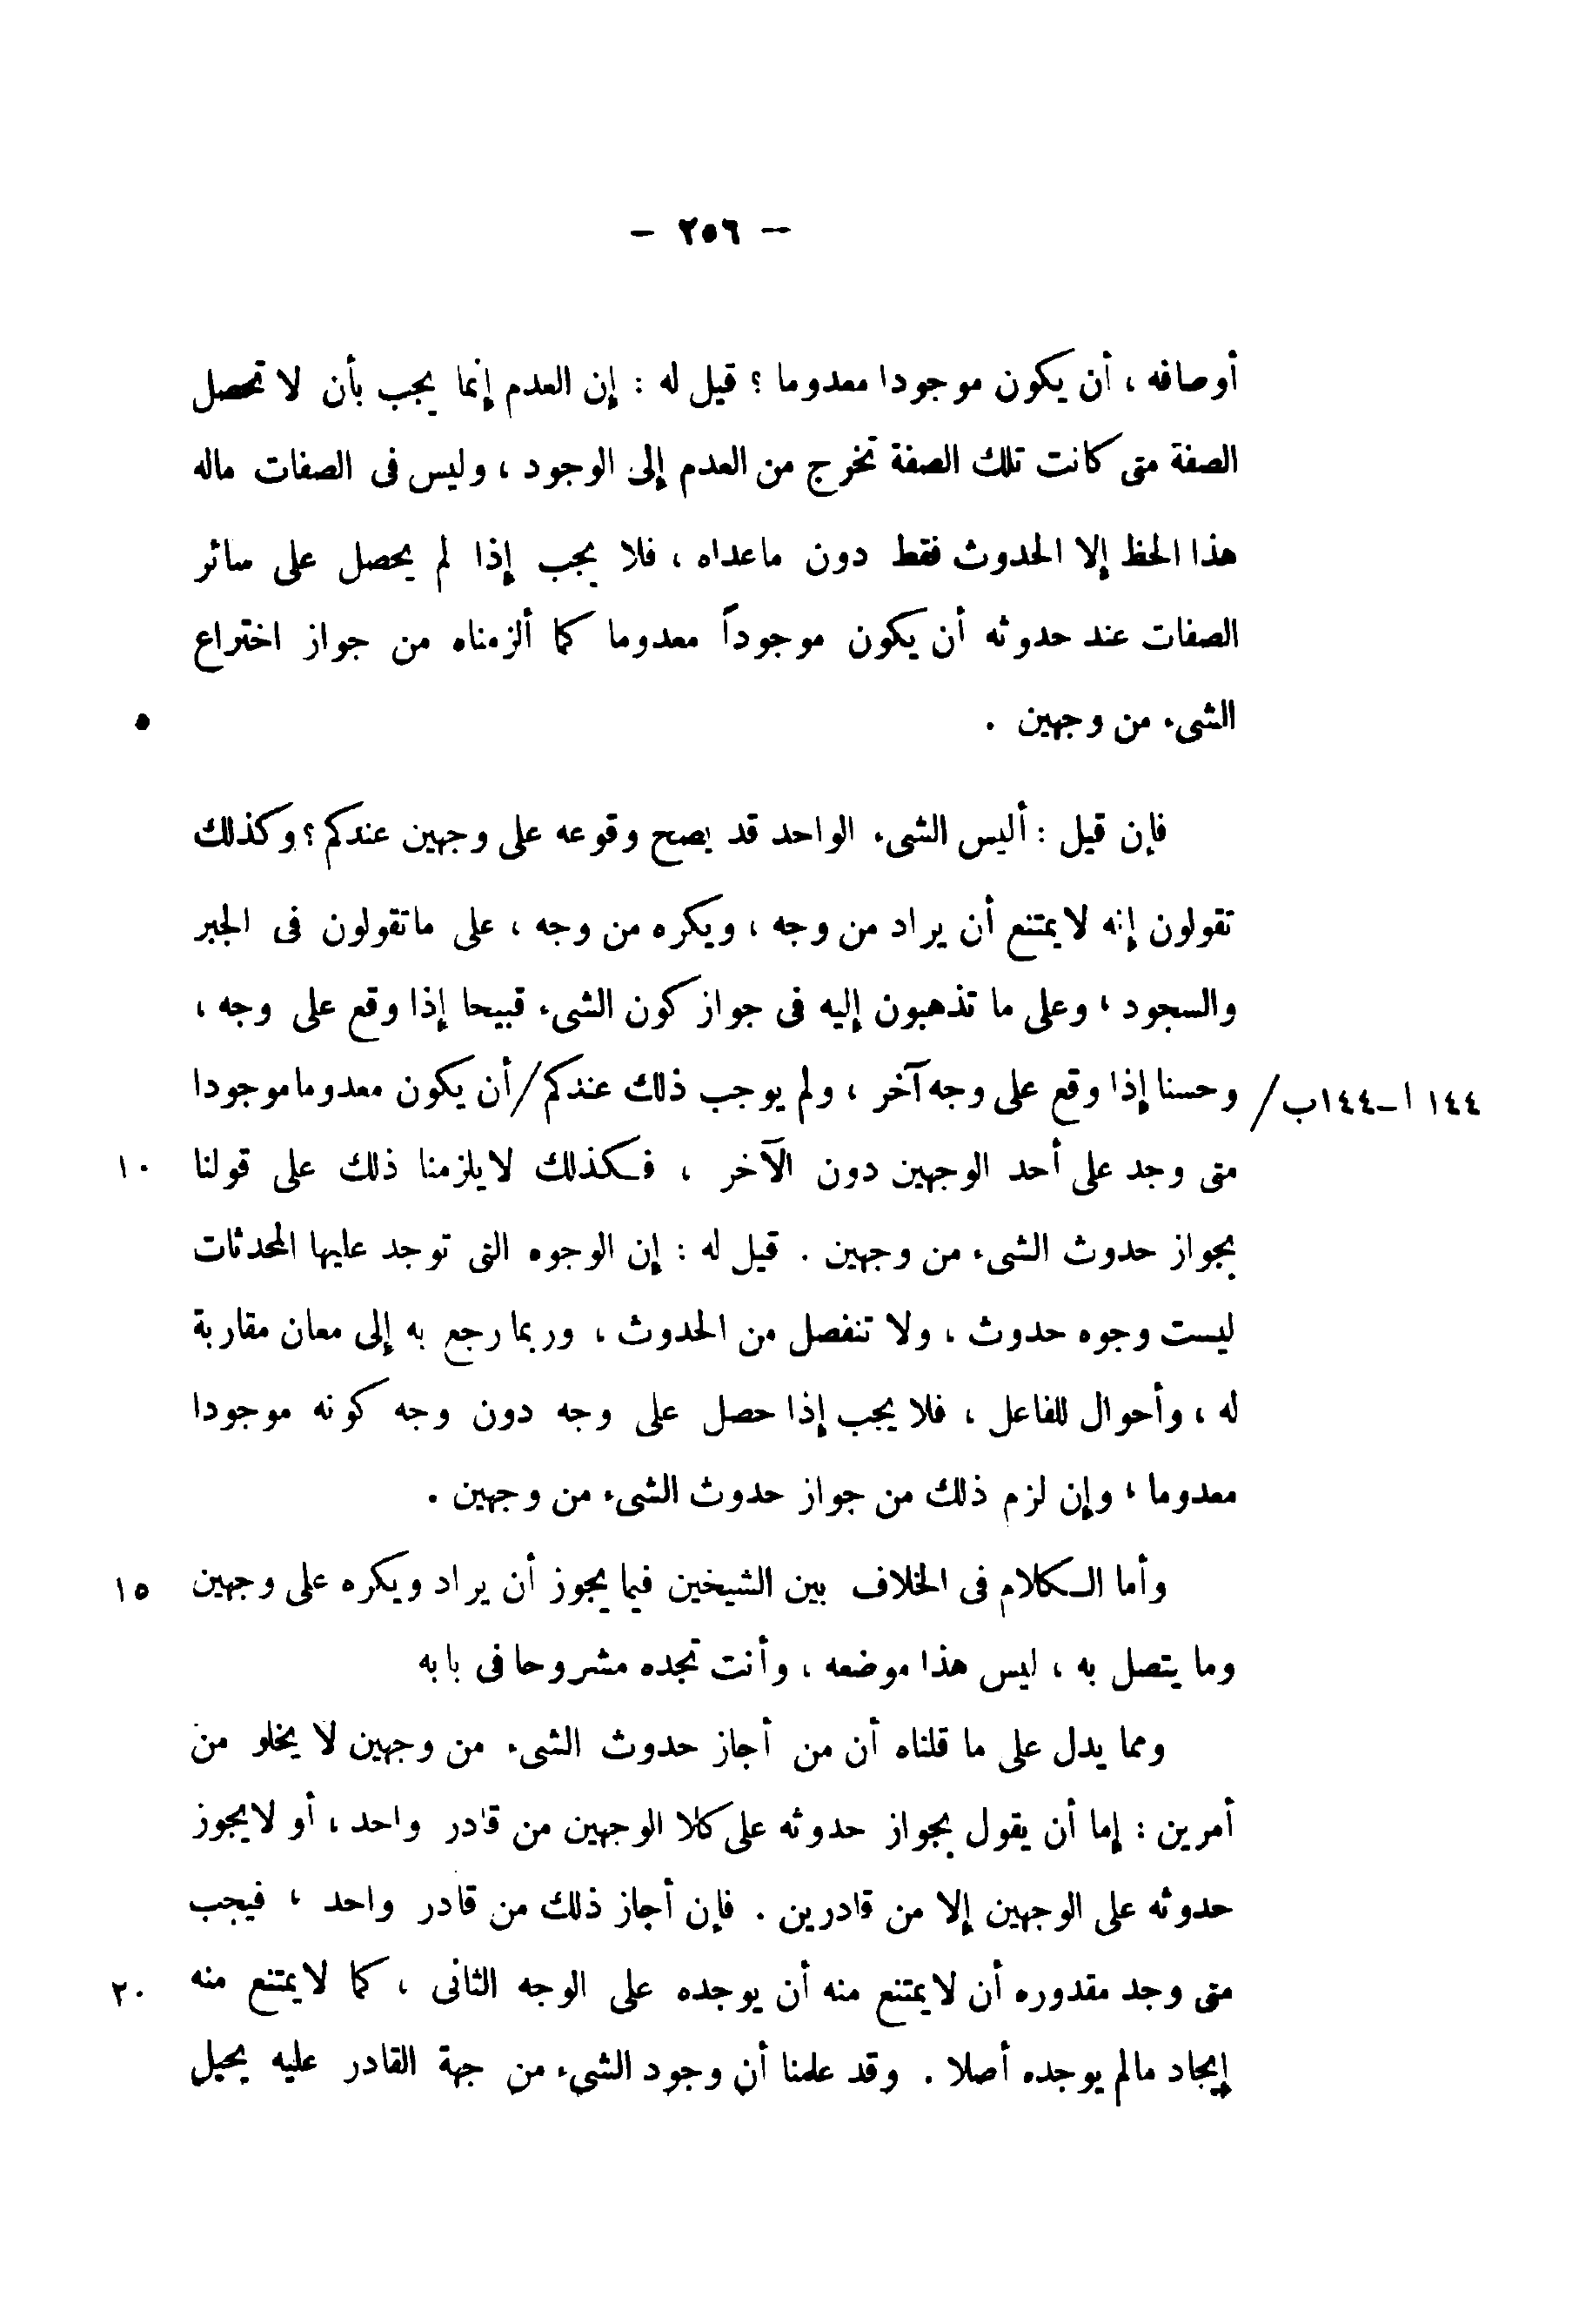 — ٢٥٦ —
أوصافه ، أن يكون موجودا معدوما ؟ قيل له : إن العدم إنما يجب بأن لا تحصل
الصفة متى كانت تلك الصفة تخرج من العدم إلى الوجود ، وليس فى الصفات ماله
هذا الحظ إلا الحدوث فقط دون ماعداه ، فلا يجب إذا لم يحصل على سائر
الصفات عند حدوثه أن يكون موجوداً معدوما كما ألزمناه من جواز اختراع
الشىء من وجهين . ٥
فإن قيل : أليس الشىء الواحد قد يصح وقوعه على وجهين عندكم ؟ وكذلك
تقولون إنه لا يمتنع أن يراد من وجه ، ويكره من وجه ، على ماتقولون فى الجبر
والسجود ، وعلى ما تذهبون إليه فى جواز كون الشىء قبيحا إذا وقع على وجه ،
١٤٤ ا ــ ١٤٤ب / وحسنا إذا وقع على وجه آخر ، ولم يوجب ذلك عندكم / أن يكون معدوما موجودا
متى وجد على أحد الوجهين دون الآخر ، فكذلك لا يلزمنا ذلك على قولنا ١٠
بجواز حدوث الشىء من وجهين . قيل له : إن الوجوه التى توجد عليها المحدثات
ليست وجوه حدوث ، ولا تنفصل من الحدوث ، وربما رجع به إلى معان مقاربة
له ، وأحوال للفاعل ، فلا يجب إذا حصل على وجه دون وجه كونه موجودا
معدوما ، وإن لزم ذلك من جواز حدوث الشىء من وجهين .
وأما الكلام فى الخلاف بين الشيخين فيما يجوز أن يراد ويكره على وجهين ١٥
وما يتصل به ، ليس هذا موضعه ، وأنت تجده مشروحا فى بابه
ومما يدل على ما قلناه أن من أجاز حدوث الشىء من وجهين لا يخلو من
أمرين : إما أن يقول بجواز حدوثه على كلا الوجهين من قادر واحد ، أو لا يجوز
حدوثه على الوجهين إلا من قادرين . فإن أجاز ذلك من قادر واحد ، فيجب
متى وجد مقدوره أن لا يمتنع منه أن يوجده على الوجه الثانى ، كما لا يمتنع منه ٢٠
إيجاد مالم يوجده أصلا . وقد علمنا أن وجود الشىء من جهة القادر عليه يحيل